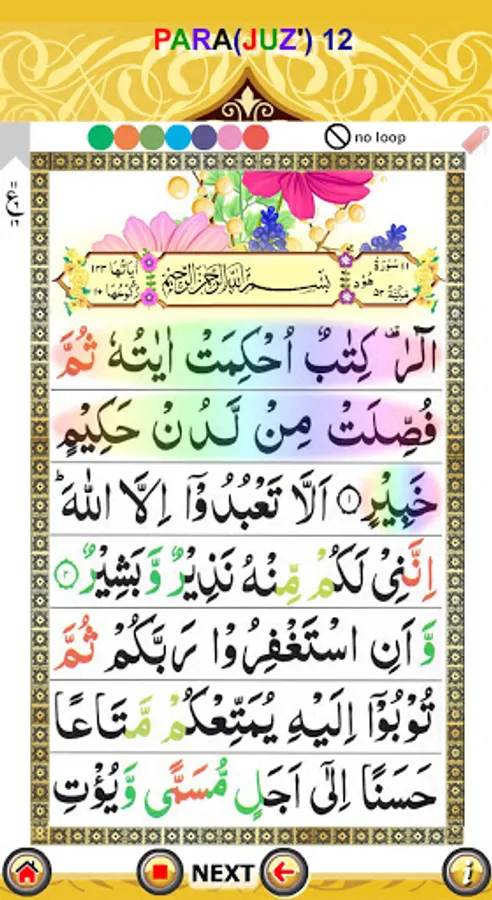 PARA(JUZ') 12
no loop
١١ سُوْرَةُ هُوْدٍ مَكِّيَّةٌ ٥٢
بِسْمِ اللّٰهِ الرَّحْمٰنِ الرَّحِيْمِ
اٰيَاتُهَا ١٢٣ رُكُوْعُهَا ١٠
الٓرٰ ۫ كِتٰبٌ اُحْكِمَتْ اٰيٰتُهٗ ثُمَّ
فُصِّلَتْ مِنْ لَّدُنْ حَكِيْمٍ
خَبِيْرٍ ۝١ اَلَّا تَعْبُدُوْۤا اِلَّا اللّٰهَ ؕ
اِنَّنِيْ لَكُمْ مِّنْهُ نَذِيْرٌ وَّبَشِيْرٌ ۝٢
وَّ اَنِ اسْتَغْفِرُوْا رَبَّكُمْ ثُمَّ
تُوْبُوْۤا اِلَيْهِ يُمَتِّعْكُمْ مَّتَاعًا
حَسَنًا اِلٰۤى اَجَلٍ مُّسَمًّى وَّيُؤْتِ
NEXT
i